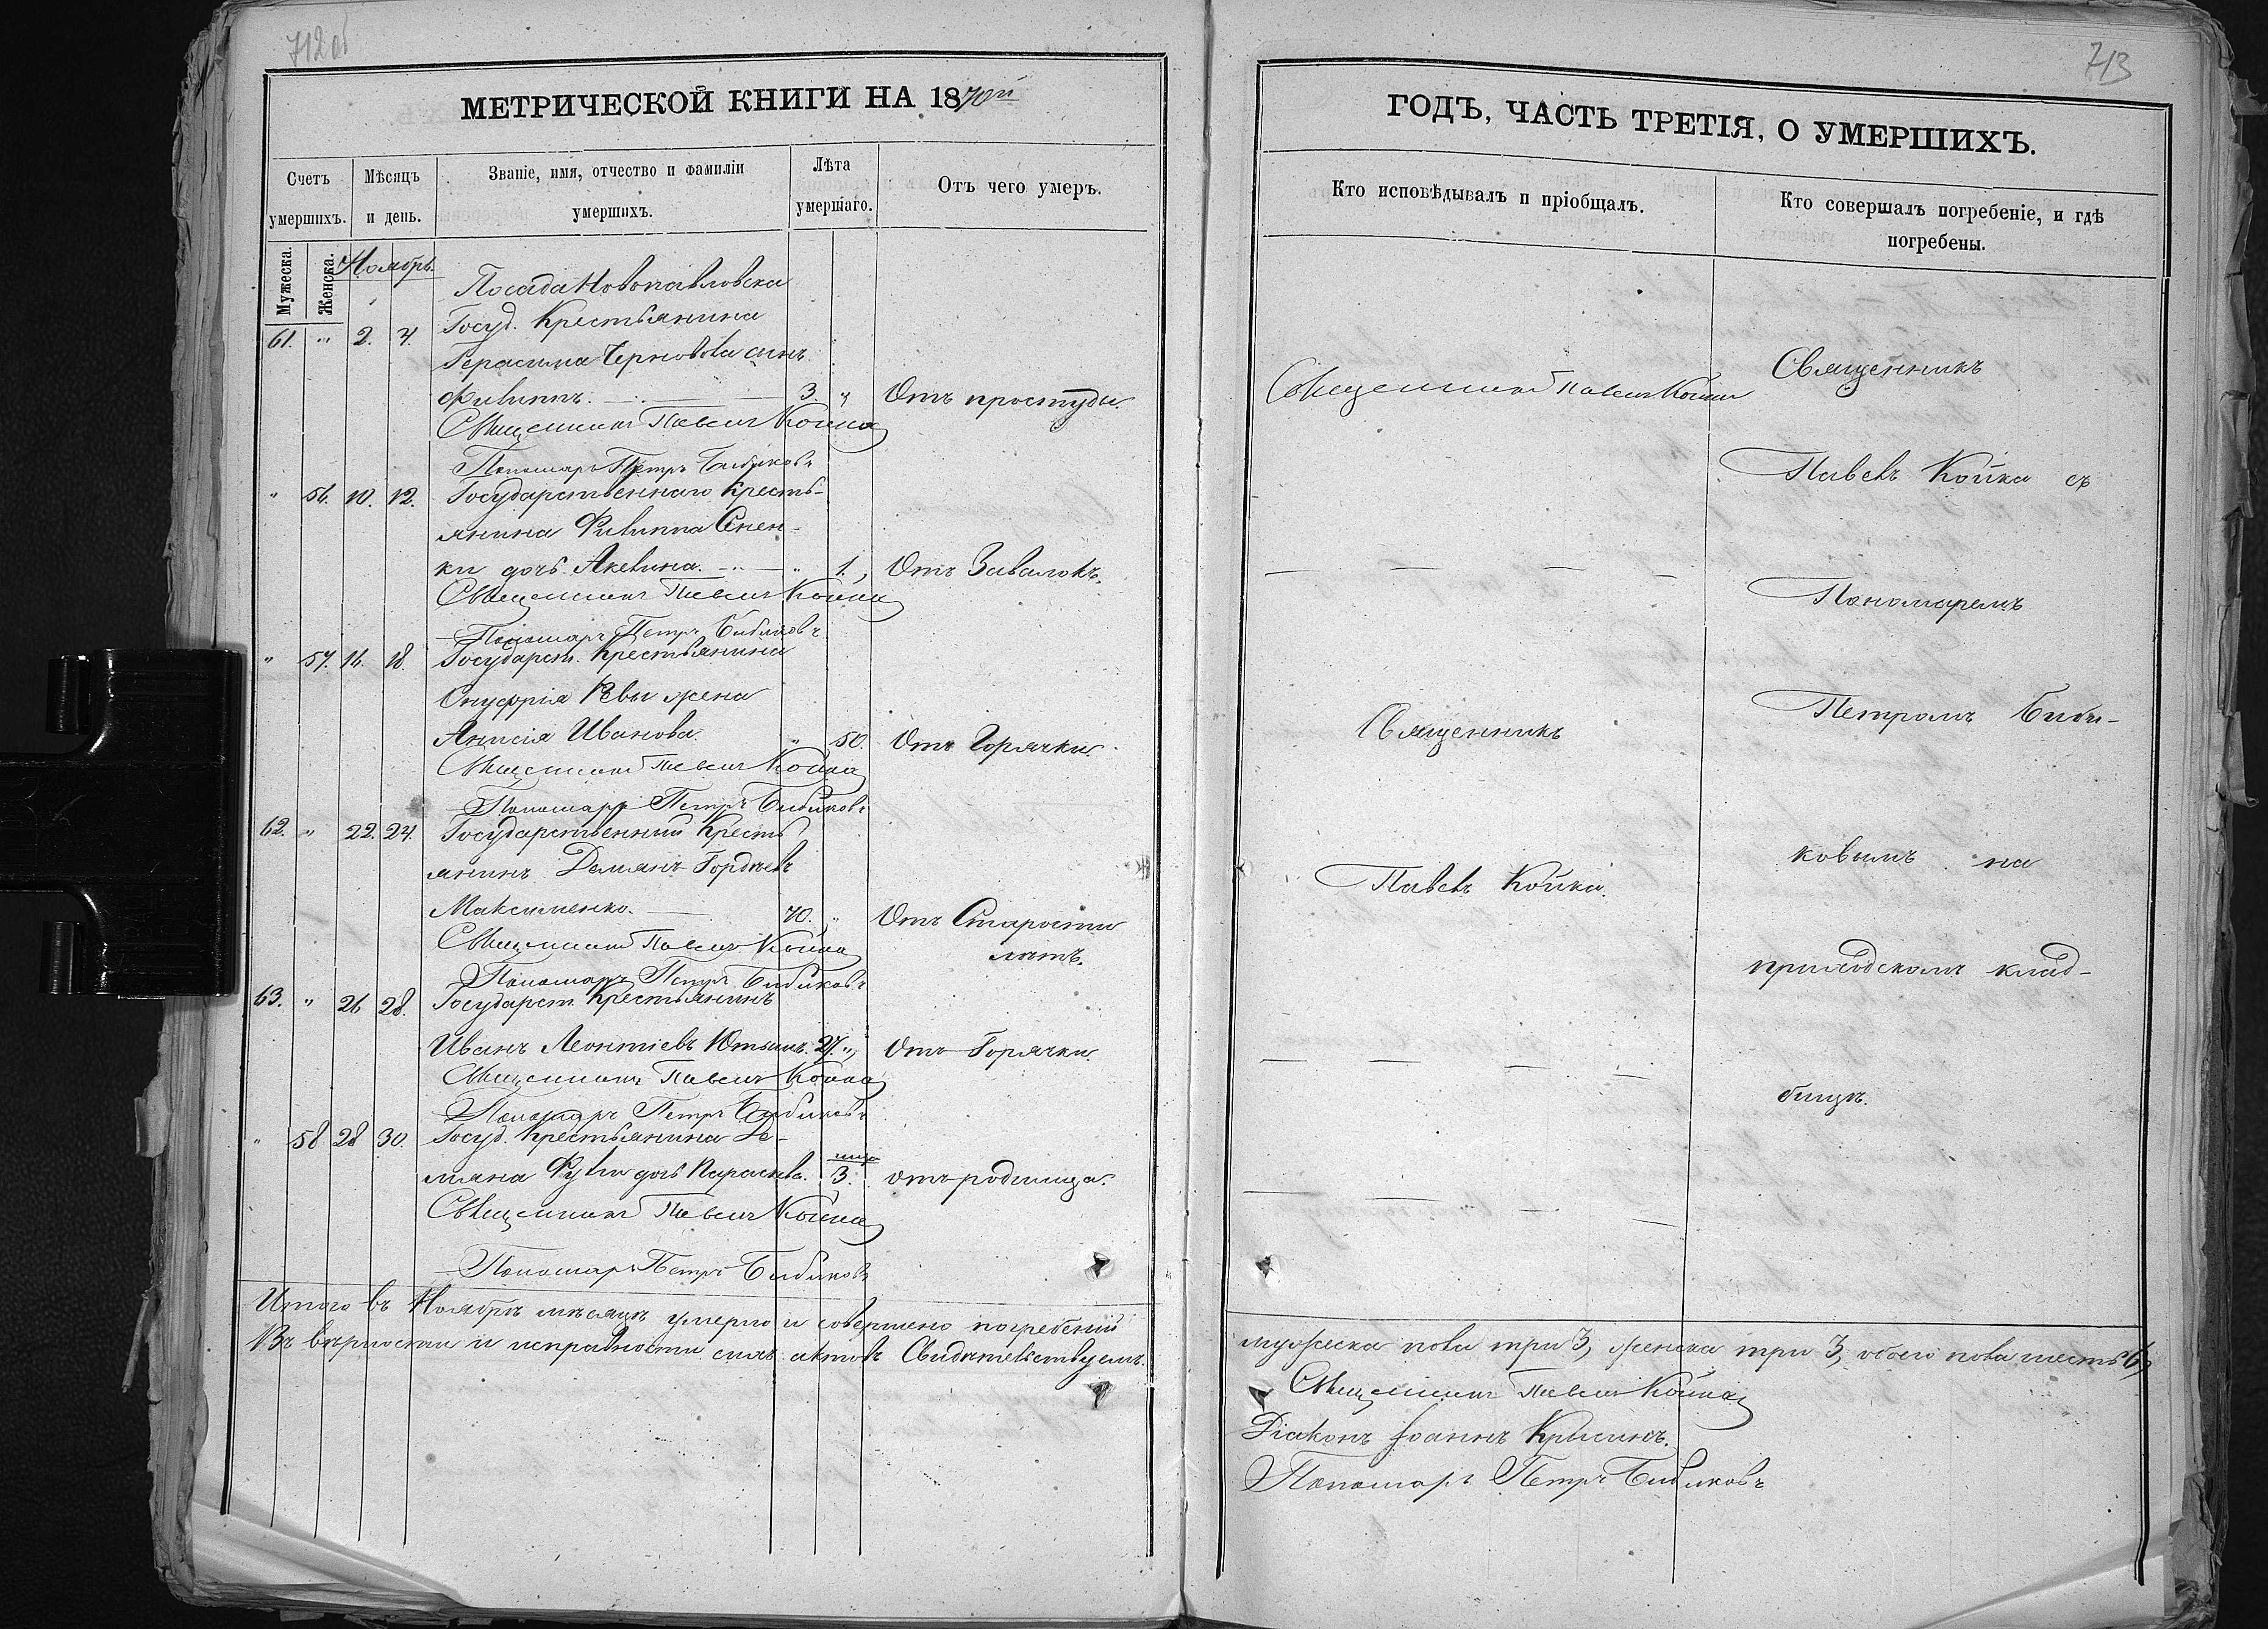 712 об
МЕТРИЧЕСКОЙ КНИГИ НА 1870й
Счетъ умершихъ.
Мѣсяцъ и день.
Званіе, имя, отчество и фамиліи умершихъ.
Лѣта умершаго.
Отъ чего умеръ.
Мужеска.
Женска.
Ноябрь.
Посада Новопавловска
61. " 2. 4. Госуд. Крестьянина
Герасима Чернового сынъ
Филиппъ. 3. " Отъ простуды.
Священникъ Павелъ Койка
Пономарь Петръ Бибиковъ
" 56. 10. 12. Государственнаго Кресть-
янина Филиппа Слен-
ки дочь Акелина. " 1. Отъ Завалокъ.
Священникъ Павелъ Койка
Пономарь Петръ Бибиковъ
" 57. 16. 18. Государст. Крестьянина
Онуфрія Ревы жена
Анисія Иванова. " 50. Отъ Горячки.
Священникъ Павелъ Койка
Пономарь Петръ Бибиковъ
62. " 22. 24. Государственный Кресть
янинъ Демянъ Гордѣевъ
Максименко. 70. " Отъ Старости
лѣтъ.
Священникъ Павелъ Койка
Пономарь Петръ Бибиковъ
63. " 26 28. Государст. Крестьянинъ
Иванъ Леонтіевъ 27. " Отъ Горячки.
Священникъ Павелъ Койка
Пономарь Петръ Бибиковъ
" 58 28 30. Госуд. Крестьянина Де-
мяна дочь Параскева. 3. отъ родимца.
Священникъ Павелъ Койка
Пономарь Петръ Бибиковъ
Итого въ Ноябрѣ мѣсяцѣ умерло и совершено погребеній
Въ вѣрности и исправности сихъ актовъ Свидѣтельствуемъ.
713
ГОДЪ, ЧАСТЬ ТРЕТІЯ, О УМЕРШИХЪ.
Кто исповѣдывалъ и пріобщалъ.
Кто совершалъ погребеніе, и гдѣ погребены.
Священникъ Павелъ Койка
Священникъ
Павелъ Койка.
Священникъ
Павелъ Койка съ
Пономаремъ
Петромъ Биби-
ковымъ на
приходскомъ клад-
бищѣ.
мужеска пола три 3, женска три 3, обоего пола шесть 6,
Священникъ Павелъ Койка
Діаконъ Іоаннъ
Пономарь Петръ Бибиковъ